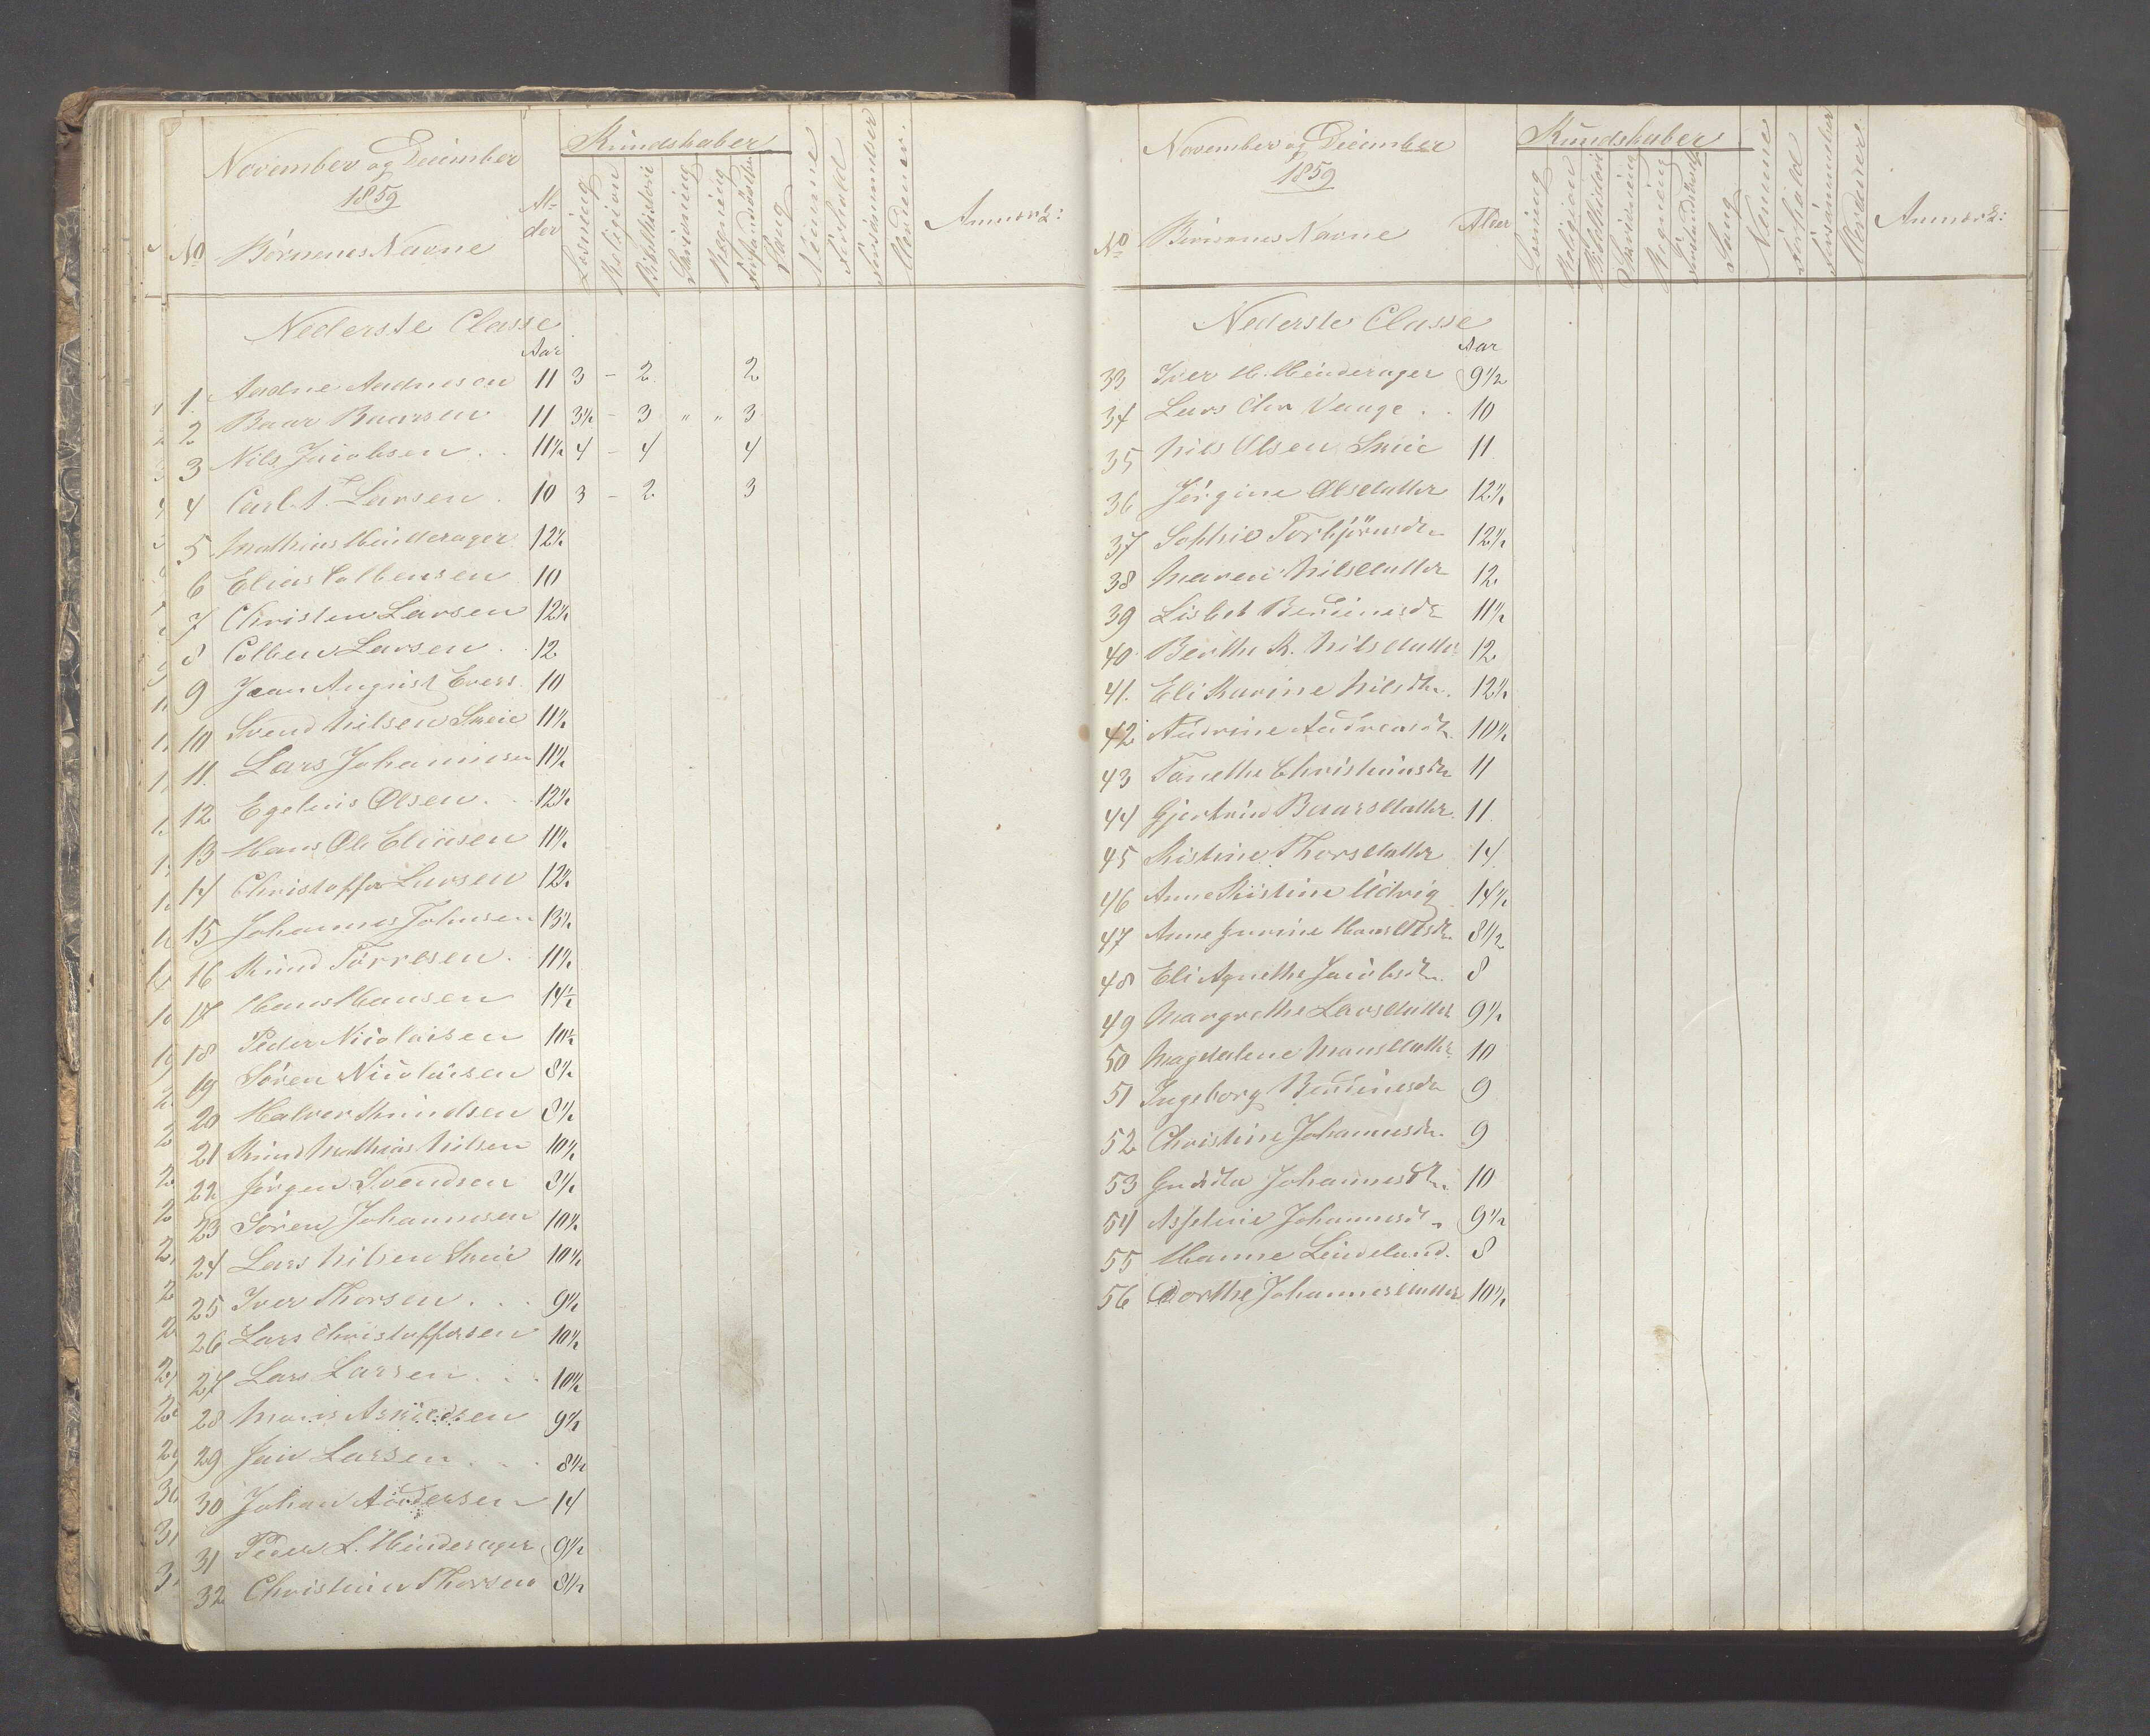 November og December
1859
No
Börnenes Navne
Al-
der
Kundskaber
Læsning
Religion
Bibelhistorie
Skrivning
Regning
Sang
Nemme
Forhold
Forsömmelser
Mödedage
Anmærk:
Nederste Classe
Aar
1. Aadne Aadnesen 11 3 - 2 2
2 Baar Baarsen 11 3½ - 3 " " 3
3 Nils Jacobsen . . 11½ 4 - 4 4
4 Carl T. Larsen . 10 3 - 2 3
5 Mathias Hinderager 12½
6 Elias Colbensen 10
7 Christen Larsen 12½
8 Colben Larsen . . 12
9 Jean August Evers 10
10 Svend Nilsen Skeie 11½
11. Lars Johannesen 11½
12 Egelius Olsen . . 12½
13 Hans Ole Eliasen 11½
14 Christoffer Larsen 12½
15 Johannes Johnsen 13½
16 Knud Törresen . 11½
17 Hans Hansen 14½
18 Peder Nicolaisen 10½
19 Sören Nicolaisen 8½
20 Halvor Knudsen 8½
21 Knud Mathias Nilsen 10½
22 Jörgen Svendsen 8½
23 Sören Johannesen 10½
24 Lars Nilsen Skeie 10½
25 Iver Thorsen . . . 9½
26 Lars Christoffersen 10½
27 Lars Larsen . . . 10½
28 Mons Askildsen 9½
29 Jan Larsen . . . 8½
30 Johan Andersen 14
31 Peder L. Hinderager 9½
32 Christian Thorsen 8½
November og December
1859
No
Börnenes Navne
Alder
Kundskaber
Læsning
Religion
Bibelhistorie
Skrivning
Regning
Sang
Nemme
Forhold
Forsömmelser
Mödedage
Anmærk:
Nederste Classe
Aar
33 Iver H. Hinderager 9½
34 Lars Chr Vaage . . 10
35 Nils Olsen Skeie 11
36 Jörgine Olsdatter 12½
37 Sophie Torbjörnsdr 12½
38 Maren Nilsdatter 12
39 Lisbet 11½
40 Berthe K. Nilsdatter 12
41. Eli Karine Nilsdtr. 12½
42 Andrine Andreasdtr. 10½
43 Tanethe Christiansdtr 11
44 Gjertrud Baarsdatter. 11.
45 Kistine Thorsdatter 14
46 Anne Kistine Udvig 14½
47 Anne Gurine Hans Olsdtr. 8½
48 Eli Agnethe Jacobsdtr. 8
49 Margrethe Larsdatter 9½
50 Magdalene Mansdatter 10
51 Ingeborg 9
52 Christine Johannesdtr. 9
53 Johannesdtr. 10
54 Asseline Johannesdtr. 9½
55 Hanne Lindeland. 8
56 Dorthe Johannesdatter 10½